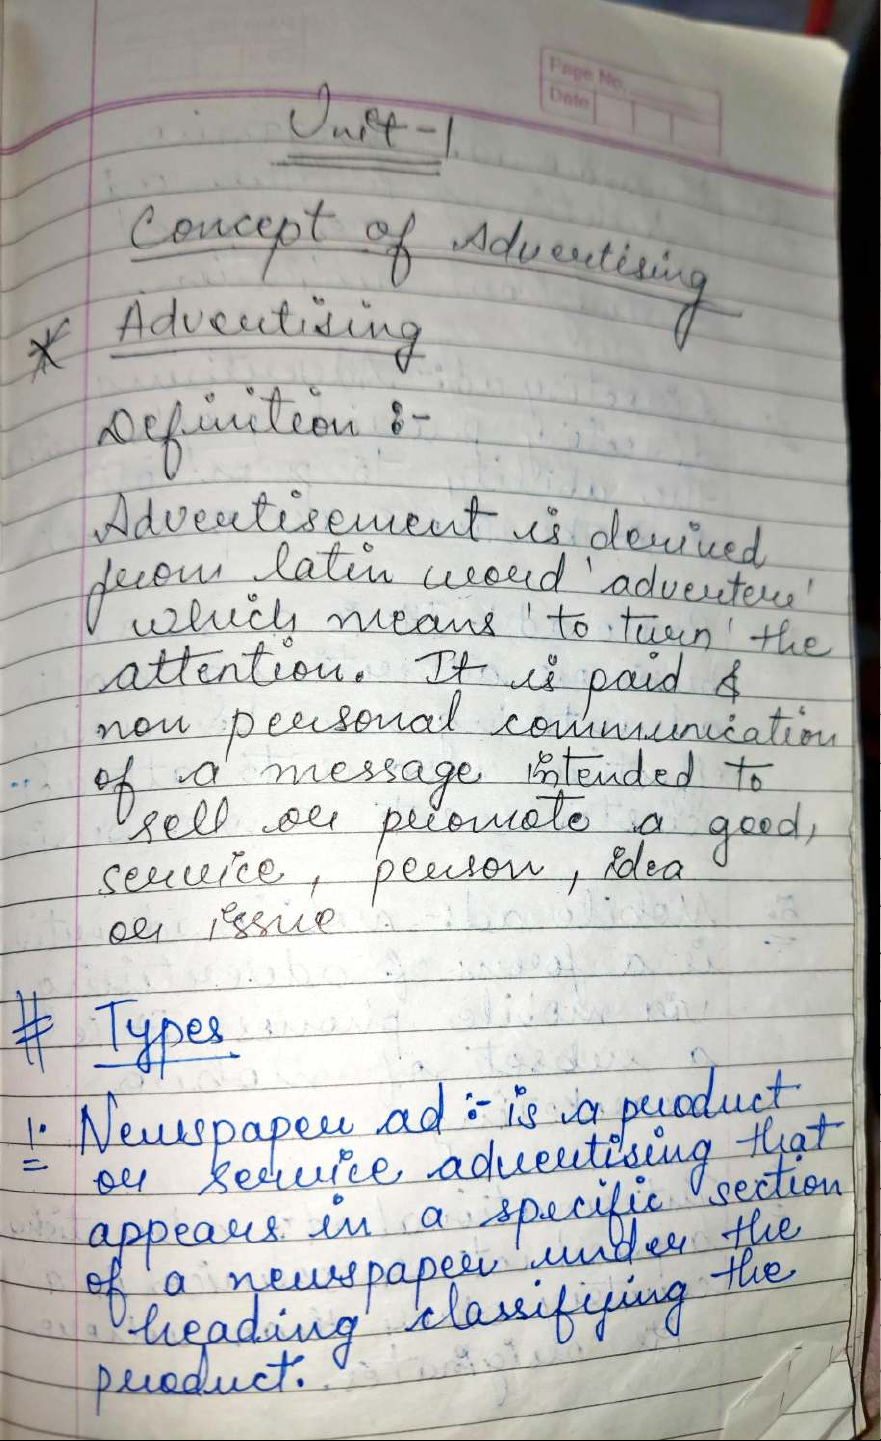 Page No.
Date
Unit-1
Concept of Advertising
* Advertising
Definition :-
Advertisement is derived
from latin word 'advertere'
which means 'to turn' the
attention. It is paid &
non personal communication
of a message intended to
sell or promote a good,
service, person, idea
or issue
# Types
1. Newspaper ad :- is a product
or service advertising that
appears in a specific section
of a newspaper under the
heading classifying the
product.